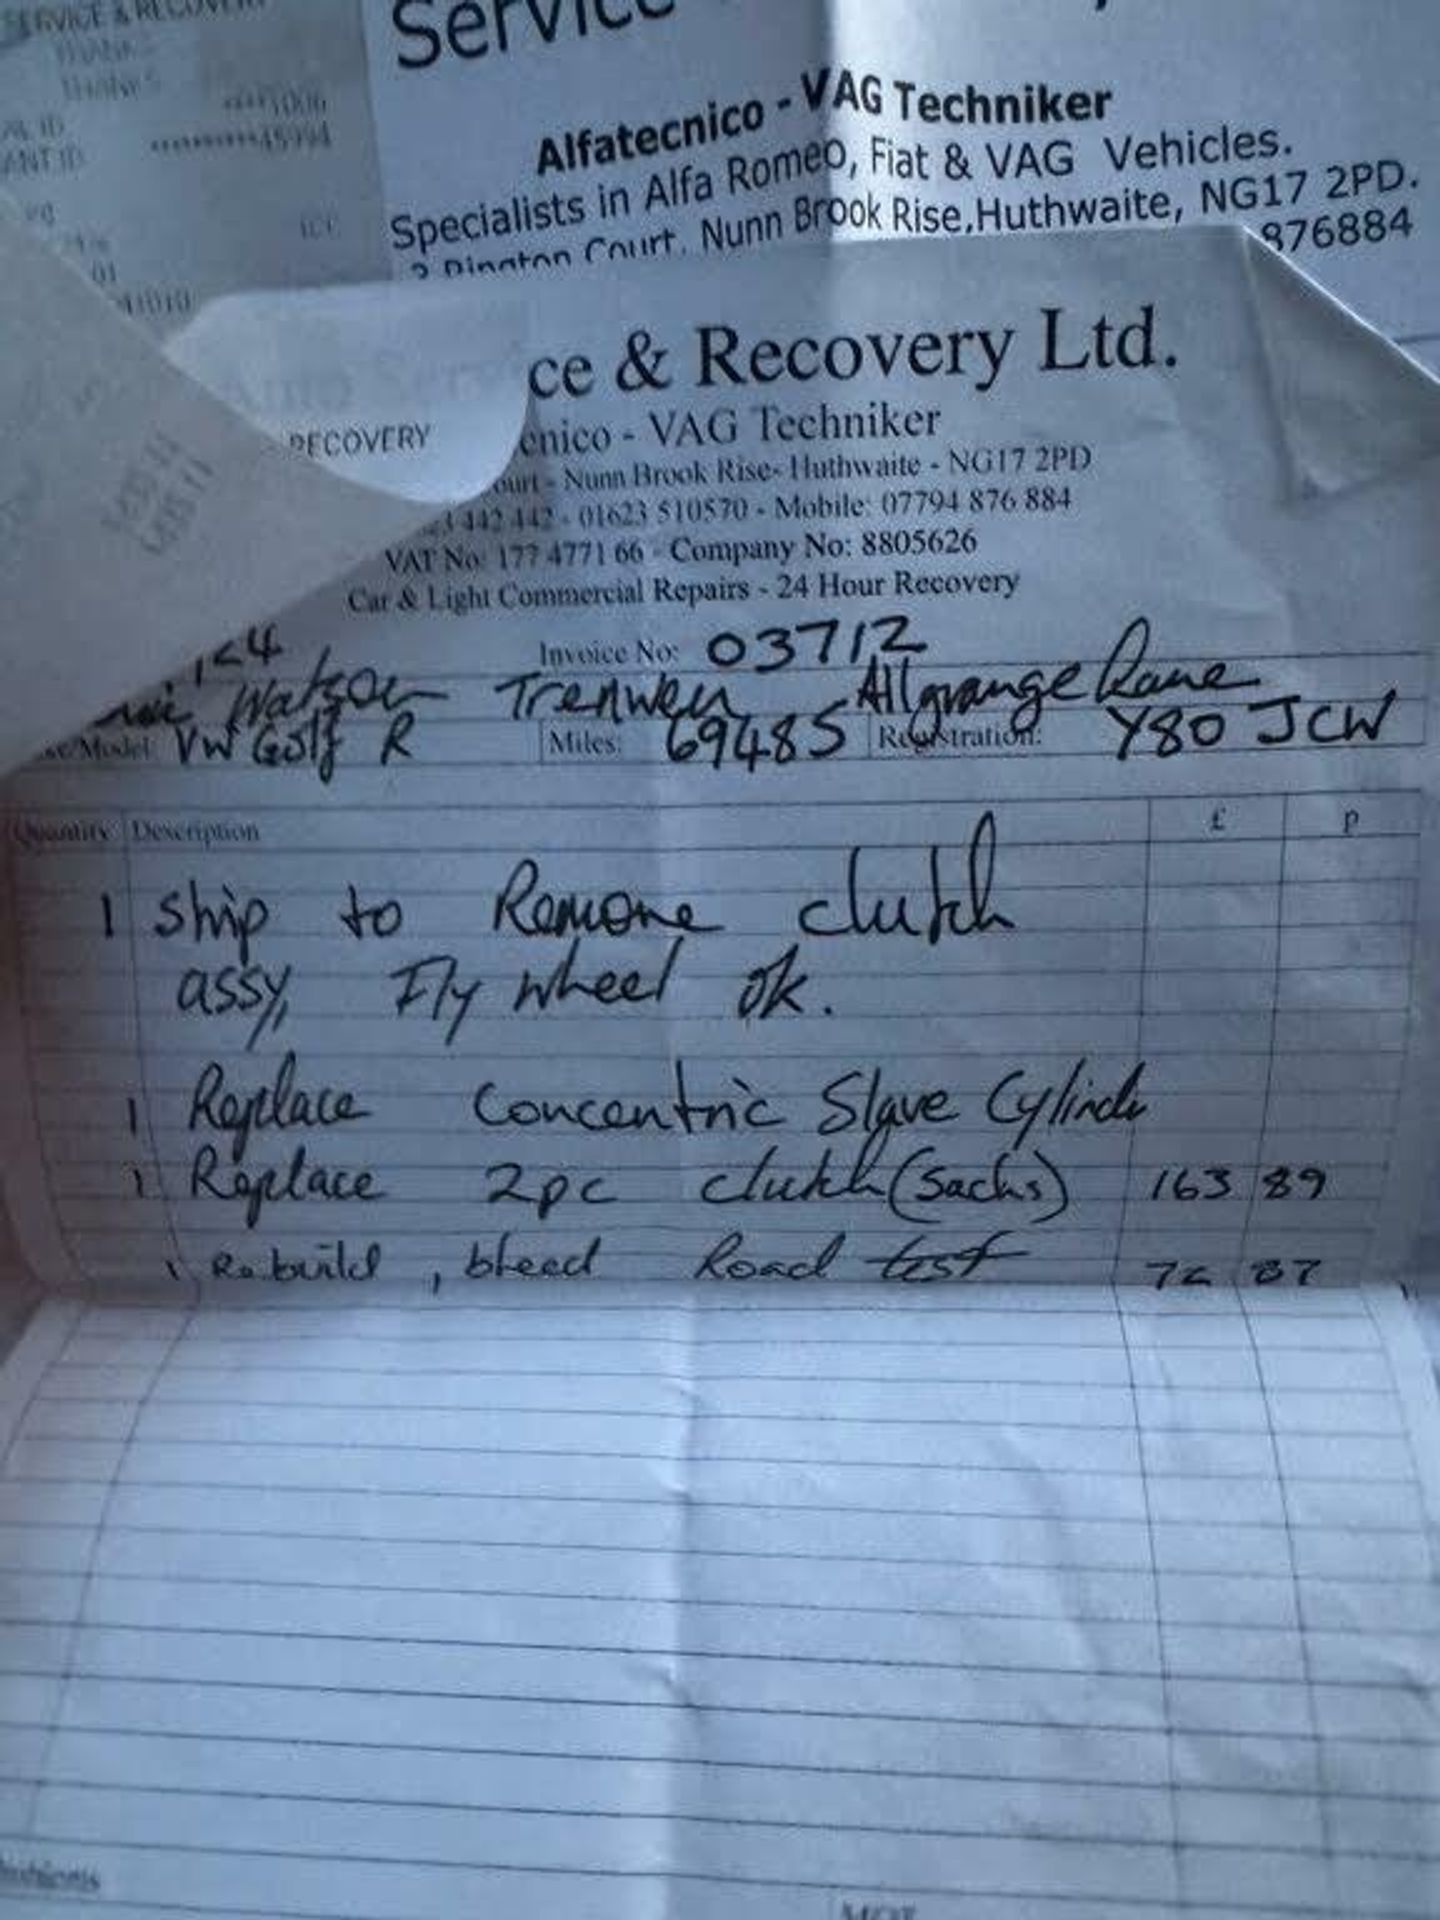 SERVICE & RECOVERY
THANKS
****1006
*********45994
ICC
01
Service
Alfatecnico - VAG Techniker
Specialists in Alfa Romeo, Fiat & VAG Vehicles.
Court, Nunn Brook Rise, Huthwaite, NG17 2PD.
876884
ce & Recovery Ltd.
RECOVERY
cnico - VAG Techniker
ourt - Nunn Brook Rise- Huthwaite - NG17 2PD
442 442 - 01623 510570 - Mobile: 07794 876 884
VAT No: 177 4771 66 - Company No: 8805626
Car & Light Commercial Repairs - 24 Hour Recovery
Invoice No: 03712
Watson Trenwen Allgrange Lane
Model: VW Golf R Miles: 69485 Registration: Y80 JCW
Quantity Description £ P
1 Strip to Remove clutch
assy, Fly wheel ok.
1 Replace Concentric Slave Cylinder
1 Replace 2pc clutch (Sachs) 163 89
1 Rebuild, bleed Road test 87
MOT